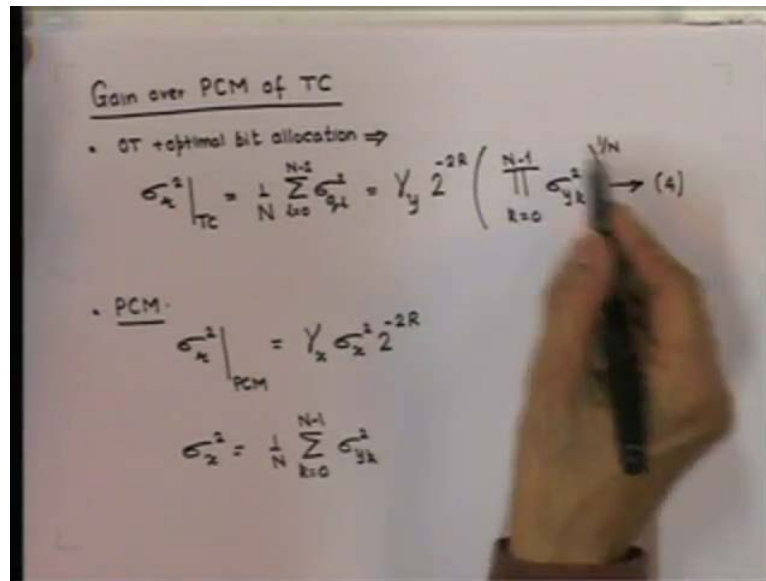 Gain over PCM of TC
• OT + optimal bit allocation ⇒
σ_r²|_TC = 1/N Σ_{k=0}^{N-1} σ_{qk}² = γ_y 2^{-2R} ( ∏_{k=0}^{N-1} σ_{yk}² )^{1/N} → (4)
• PCM.
σ_r²|_PCM = γ_x σ_x² 2^{-2R}
σ_x² = 1/N Σ_{k=0}^{N-1} σ_{yk}²